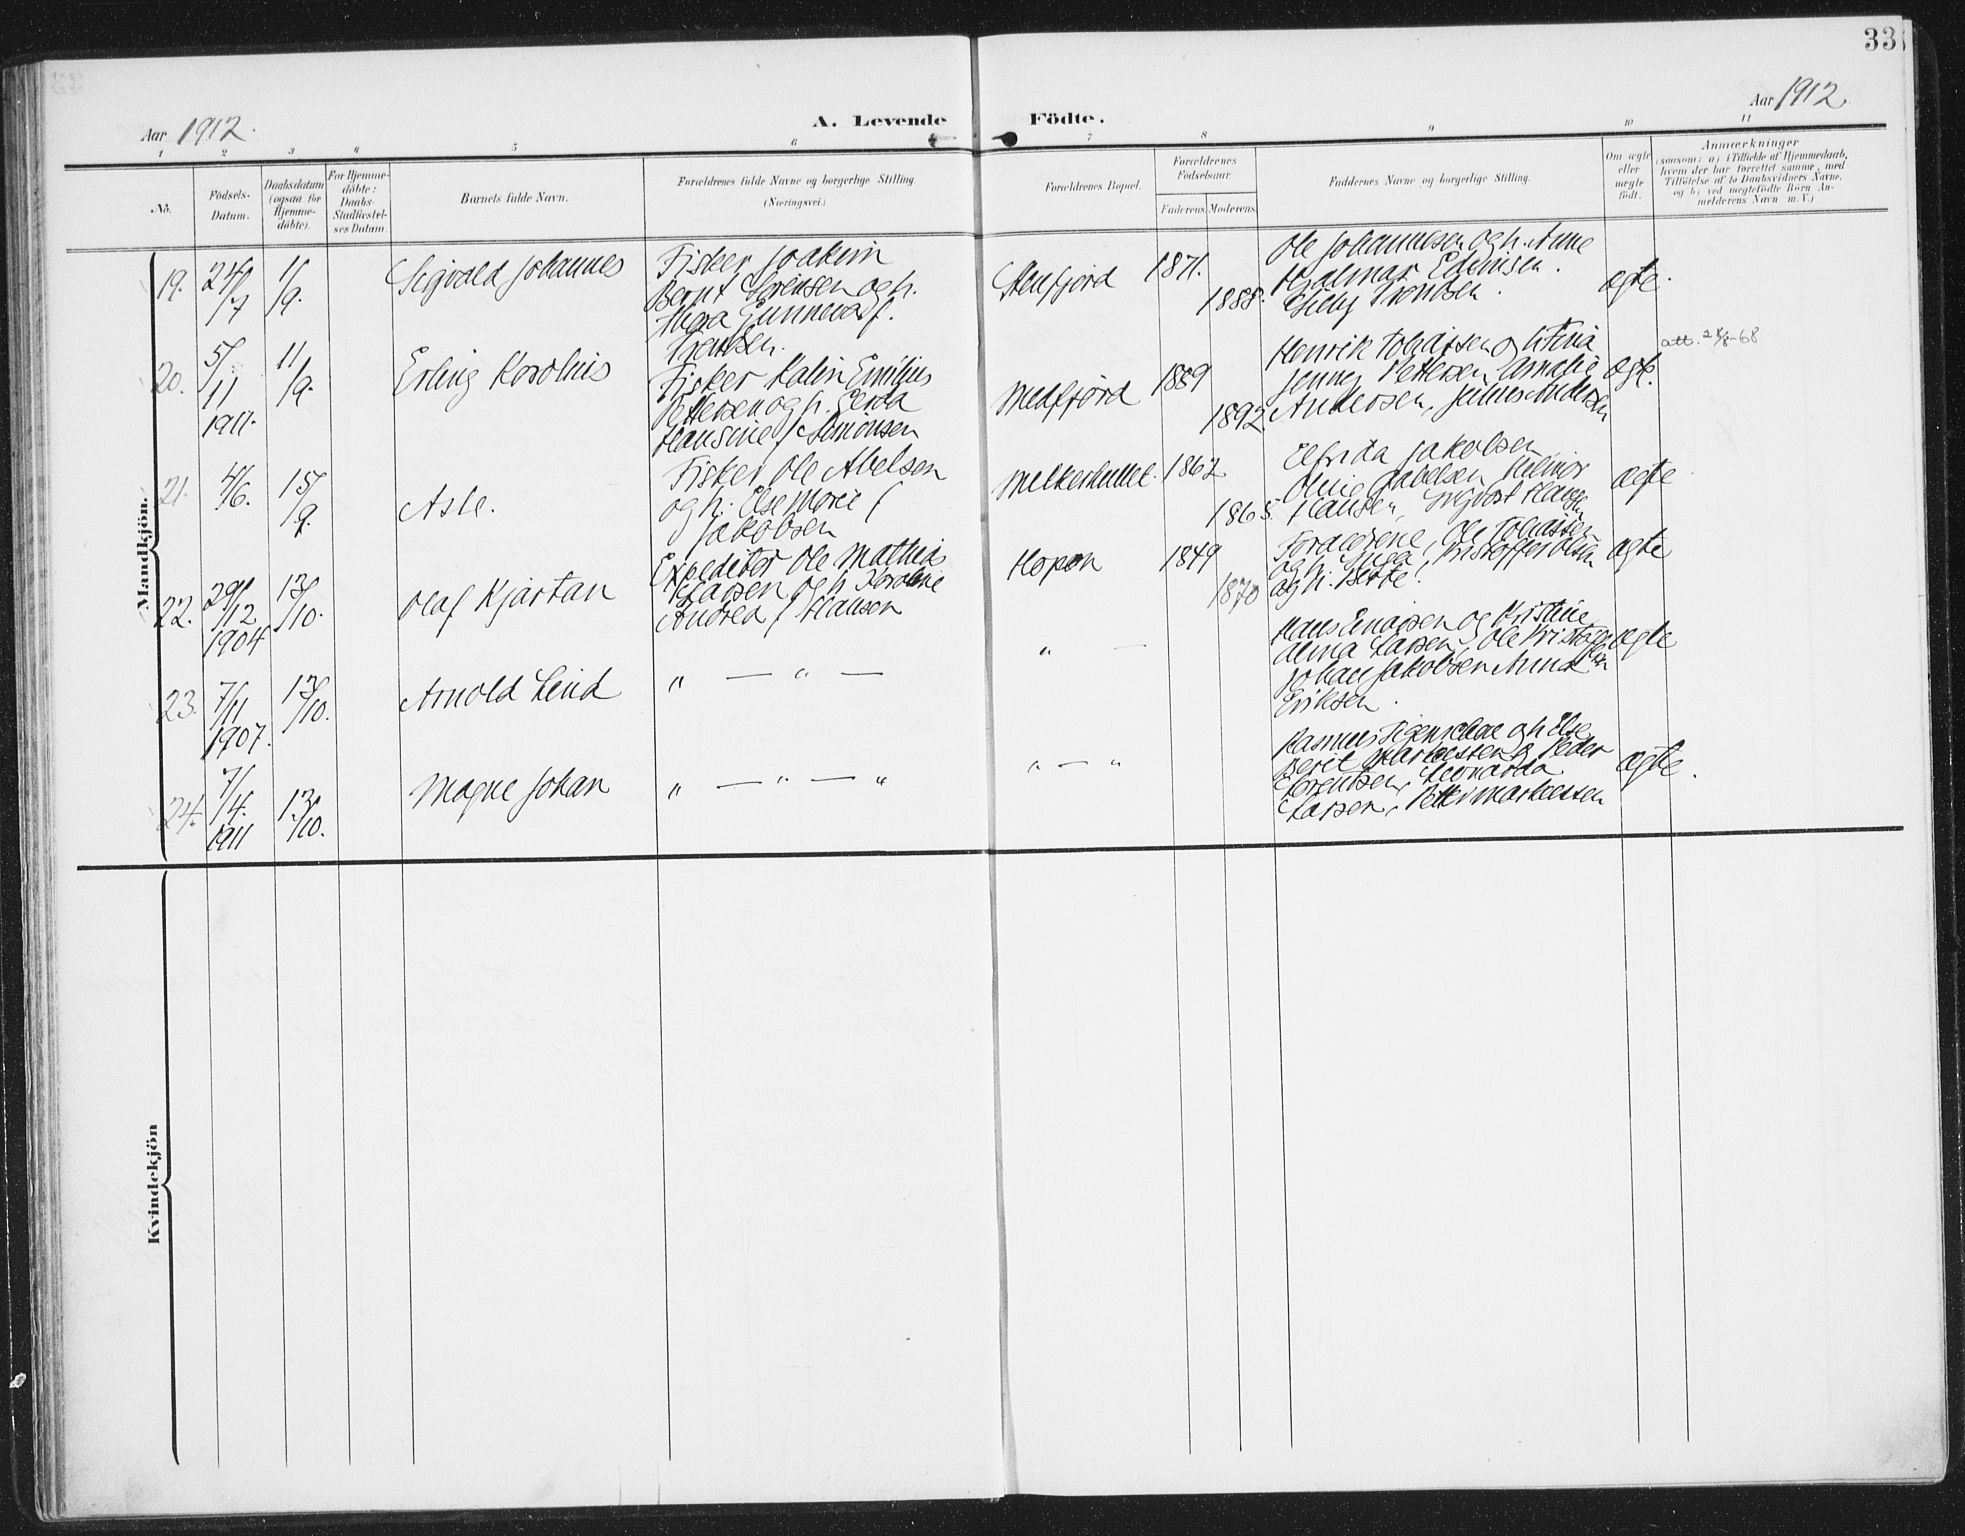 33
Aar 1912.
A. Levende Födte.
Aar 1912.
1 2 3 4 5 6 7 8 9 10 11
No.
Födsels-
Datum.
Daabsdatum
(ogsaa for
Hjemme-
döbte).
For Hjemme-
döbte:
Daabs-
Stadfæstel-
ses Datum.
Barnets fulde Navn.
Forældrenes fulde Navne og borgerlige Stilling.
(Næringsvei.)
Forældrenes Bopæl.
Forældrenes
Födselsaar.
Faderens. Moderens.
Faddernes Navne og borgerlige Stilling.
Om ægte
eller
uægte
födt.
Anmærkninger
(saasom: a) i Tilfælde af Hjemmedaab,
hvem der har forrettet samme, med
Tilföielse af to Daabsvidners Navne,
og b) ved uægtefödte Börn An-
melderens Navn m. V.)
Mandkjön.
19. 24/7 1/9. Sigvald Johannes
Fisker Joakim
Bernt Sörensen og h.
Gunneva f.
Stenfjord 1871. 1888.
Ole Johannesen og h. Anne
Hjalmar Edvinsen.
ægte.
20. 5/11 1911. 11/9. Erling Karolius
Fisker Kalin Emilius
Pettersen og h. Gerda
Hansine f. Simonsen
Medfjord 1889 1892.
Henrik Tobiassen og h. Fina
Jenny Pettersen, Amalie
Andersen, Julius Andersen
ægte.
att. 2%-68
21. 4/6. 15/9. Asle.
Fisker Ole Abelsen
og h. Else Marie f.
Jakobsen
1862 1865.
Elfrida Jakobsen
Hansen, Sigvart Hansen
ægte
22. 29/12 1904 13/10. Olaf Kjartan
Expeditör Ole Mathias
Larsen og h. Karoline
Andrea f. Hansen
Hopen 1849 1870
Forældrene, Ole Tobiassen
og h. Kristoffer Olsen
og h. Berte.
ægte
23. 7/11 1907. 13/10. Arnold Leid
" — " —
" —
Hans Einarsen og Kristine
Alma Larsen, Ole Kristoffersen
Johan Jakobsen Anna
Eriksen.
ægte
24. 7/4. 1911 13/10. Magne Johan
" — " — "
" — "
Rasmus og h. Else
Berit Markussen, Peder
Lorentsen, Leonarda
Larsen, Petter Markussen
ægte.
Kvindekjön